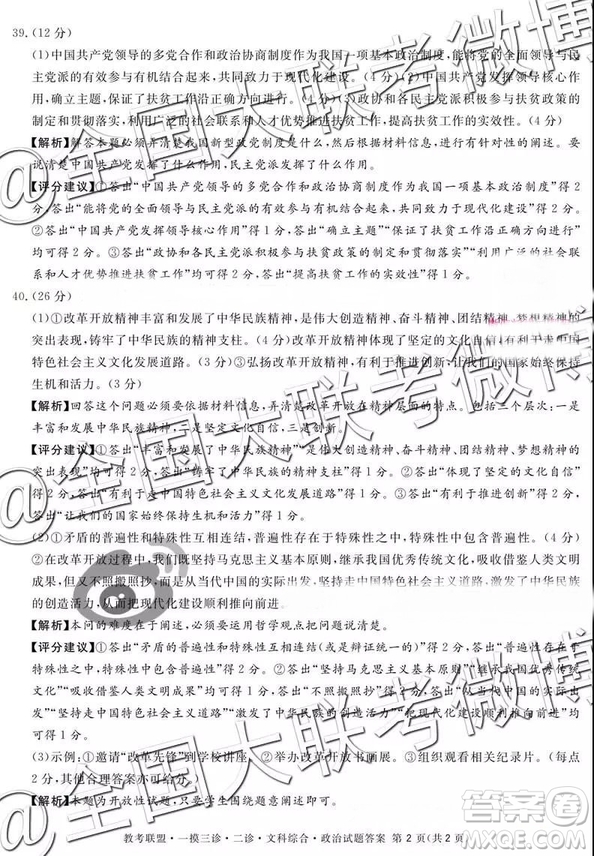 39.(12分)
(1)中国共产党领导的多党合作和政治协商制度作为我国一项基本政治制度,能将党的全面领导与民
主党派的有效参与有机结合起来,共同致力于现代化。(4分)(2)中国共产党发挥领导核心作
用,确立主题,保证了扶贫工作沿正确方向进行。(4分)(3)政协和各民主党派积极参与扶贫政策
的制定和贯彻落实,利用广泛的社会联系和人才优势推进扶贫工作,提高扶贫工作的实效性。(4分)
【解析】解答本题必须弄清楚我国新型政党制度的内容,然后根据材料信息,进行有针对性的阐述。要
说清楚是中国共产党发挥了什么作用,民主党派发挥了什么作用。
【评分建议】①答出“中国共产党领导的多党合作和政治协商制度作为我国一项基本政治制度”得2
分,答出“能将党的全面领导与民主党派的有效参与有机结合起来,共同致力于现代化”得2分。
②答出“中国共产党发挥领导核心作用”“确立主题,保证了扶贫工作沿正确方向进行”
均可得2分。③答出“政协和各民主党派积极参与扶贫政策的制定和贯彻落实”“利用广泛的社会联
系和人才优势推进扶贫工作”均可得2分,答出“提高扶贫工作的实效性”得2分。
40.(26分)
(1)①改革开放精神丰富和发展了中华民族精神,是伟大创造精神、奋斗精神、团结精神、梦想精神的
突出表现,铸牢了中华民族的精神支柱。②改革开放精神有利于坚定文化自信,有利于走中国
特色社会主义文化发展道路。(3分)③弘扬改革开放精神,有利于推进创新,让我们的国家始终保持
生机和活力。(3分)
【解析】回答这个问题必须要依据材料信息,弄清楚改革开放精神在精神层面的意义。包括三个层次:一是
丰富和发展中华民族精神,二是坚定文化自信,三是推动创新。
【评分建议】①答出“丰富和发展了中华民族精神”“是伟大创造精神、奋斗精神、团结精神、梦想精神的
突出表现”均可得2分,答出“铸牢了中华民族的精神支柱”得1分。②答出“坚定了文化自信”
得2分,答出“有利于走中国特色社会主义文化发展道路”得1分。③答出“有利于推进创新”得2
分,答出“让我们的国家始终保持生机和活力”得1分。
(2)①矛盾的普遍性和特殊性互相连结,普遍性存在于特殊性之中,特殊性中包含普遍性。(4分)
②在改革开放过程中,我们既坚持马克思主义基本原则,继承我国优秀传统文化,吸收借鉴人类文明
成果,又不照搬照抄,从当代中国的实际出发,坚持走中国特色社会主义道路,激发了中华民族
的创造活力,从而把现代化建设顺利推向前进。
【解析】本问的难度在于阐述,必须要运用哲学观点把问题说清楚。
【评分建议】①答出“矛盾的普遍性和特殊性互相连结(或者是辩证统一的)”得2分,答出“普遍性存在于
特殊性之中,特殊性中包含普遍性”得2分。②答出“坚持马克思主义基本原则”“继承我国优秀传统
文化”“吸收借鉴人类文明成果”均可得2分,答出“不照搬照抄”得2分,答出“从当代中国的实际出
发”“坚持走中国特色社会主义道路”“激发了中华民族的创造活力”“把现代化建设顺利推向前进”均
可得2分。
(3)示例:①邀请“改革先锋”到学校讲座。②举办改革开放书画展。③组织观看相关纪录片。(每点
2分,其他合理答案亦可给分。)
【解析】本题为开放性试题,可以自由作答。
教考联盟·一摸三诊·二诊·文科综合·政治试题答案 第2页(共2页)
@全国大联考微博
@全国大联考微博
@全国大联考微博
答案圈
MXQE.COM